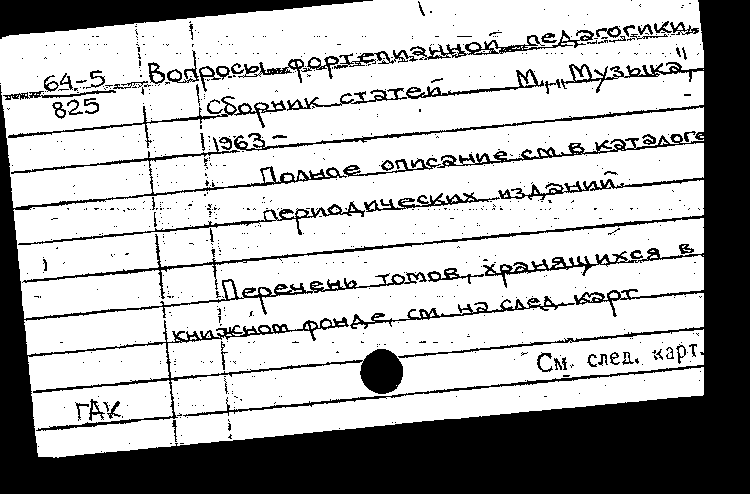 1.
64-5 Вопросы фортепианной педагогики.
825 Сборник статей. М., „Музыка",
1963 –
Полное описание см. в каталоге
периодических изданий.
Перечень томов, хранящихся в
книжном фонде, см. на след. карт
См. след. карт.
ГАК